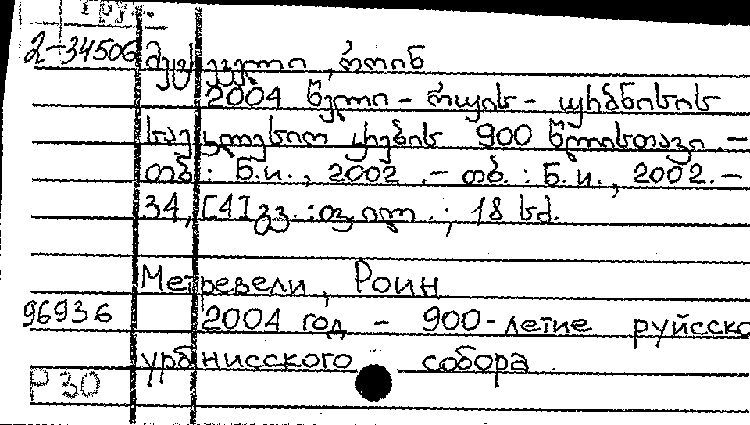 Груз.
2-34506 მეტრეველი, როინ
2004 წელი - რუის - ურბნისის
საეკლესიო კრების 900 წლისთავი. -
თბ. : ნ.ი., 2002. - თბ. : ნ.ი., 2002. -
34, [4] გვ. : ; 18 სმ.
Метревели, Роин
96936 2004 год - 900-летие руйсско
урбнисского собора
Р30